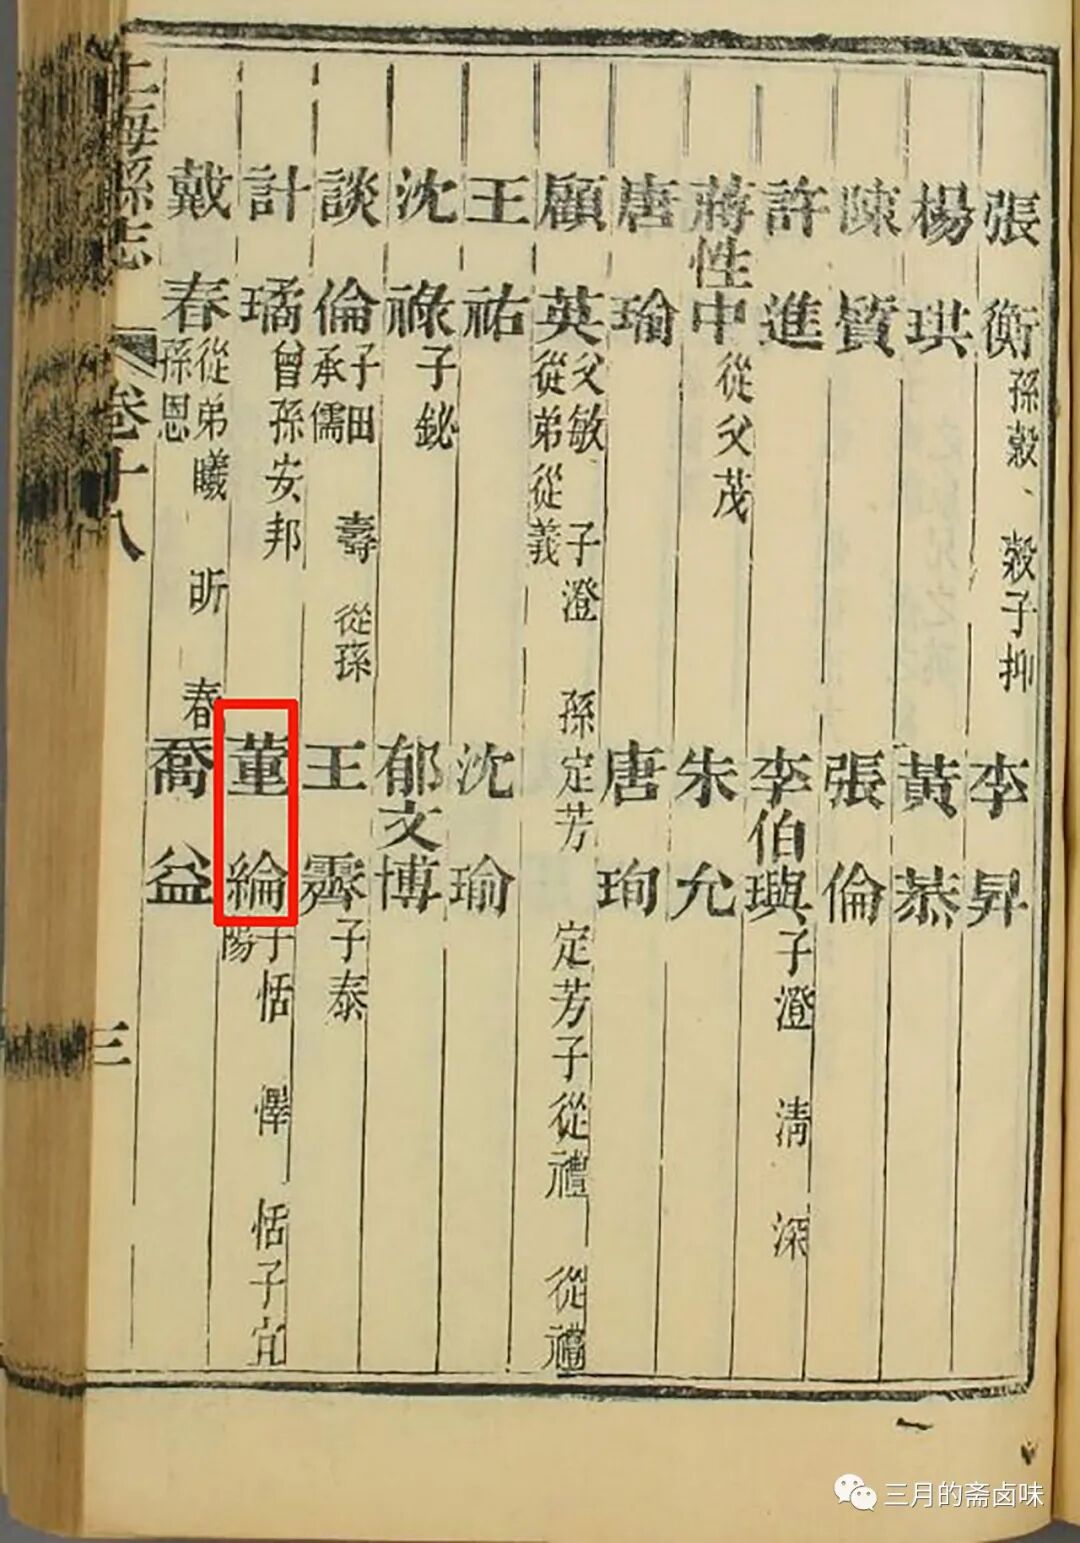 張衡 孫穀、穀子抑 李昇
楊珙 黃恭
陳質 張倫
許進 李伯璵 子澄 清 深
蔣性中 從父茂 朱允
唐瑜 唐珣
顧英 父敏 子澄 孫定芳 定芳子從禮 從禮
從弟從義
王祐 沈瑜
沈祿 子鉍 郁文博
談倫 子田 壽 從孫 王霽 子泰
承儒
計璚 曾孫安邦 董綸 子恬 懌 恬子宜
陽
戴春 從弟曦 昕 春 喬益
孫恩
上海縣志 卷十八 三
三月的斋卤味